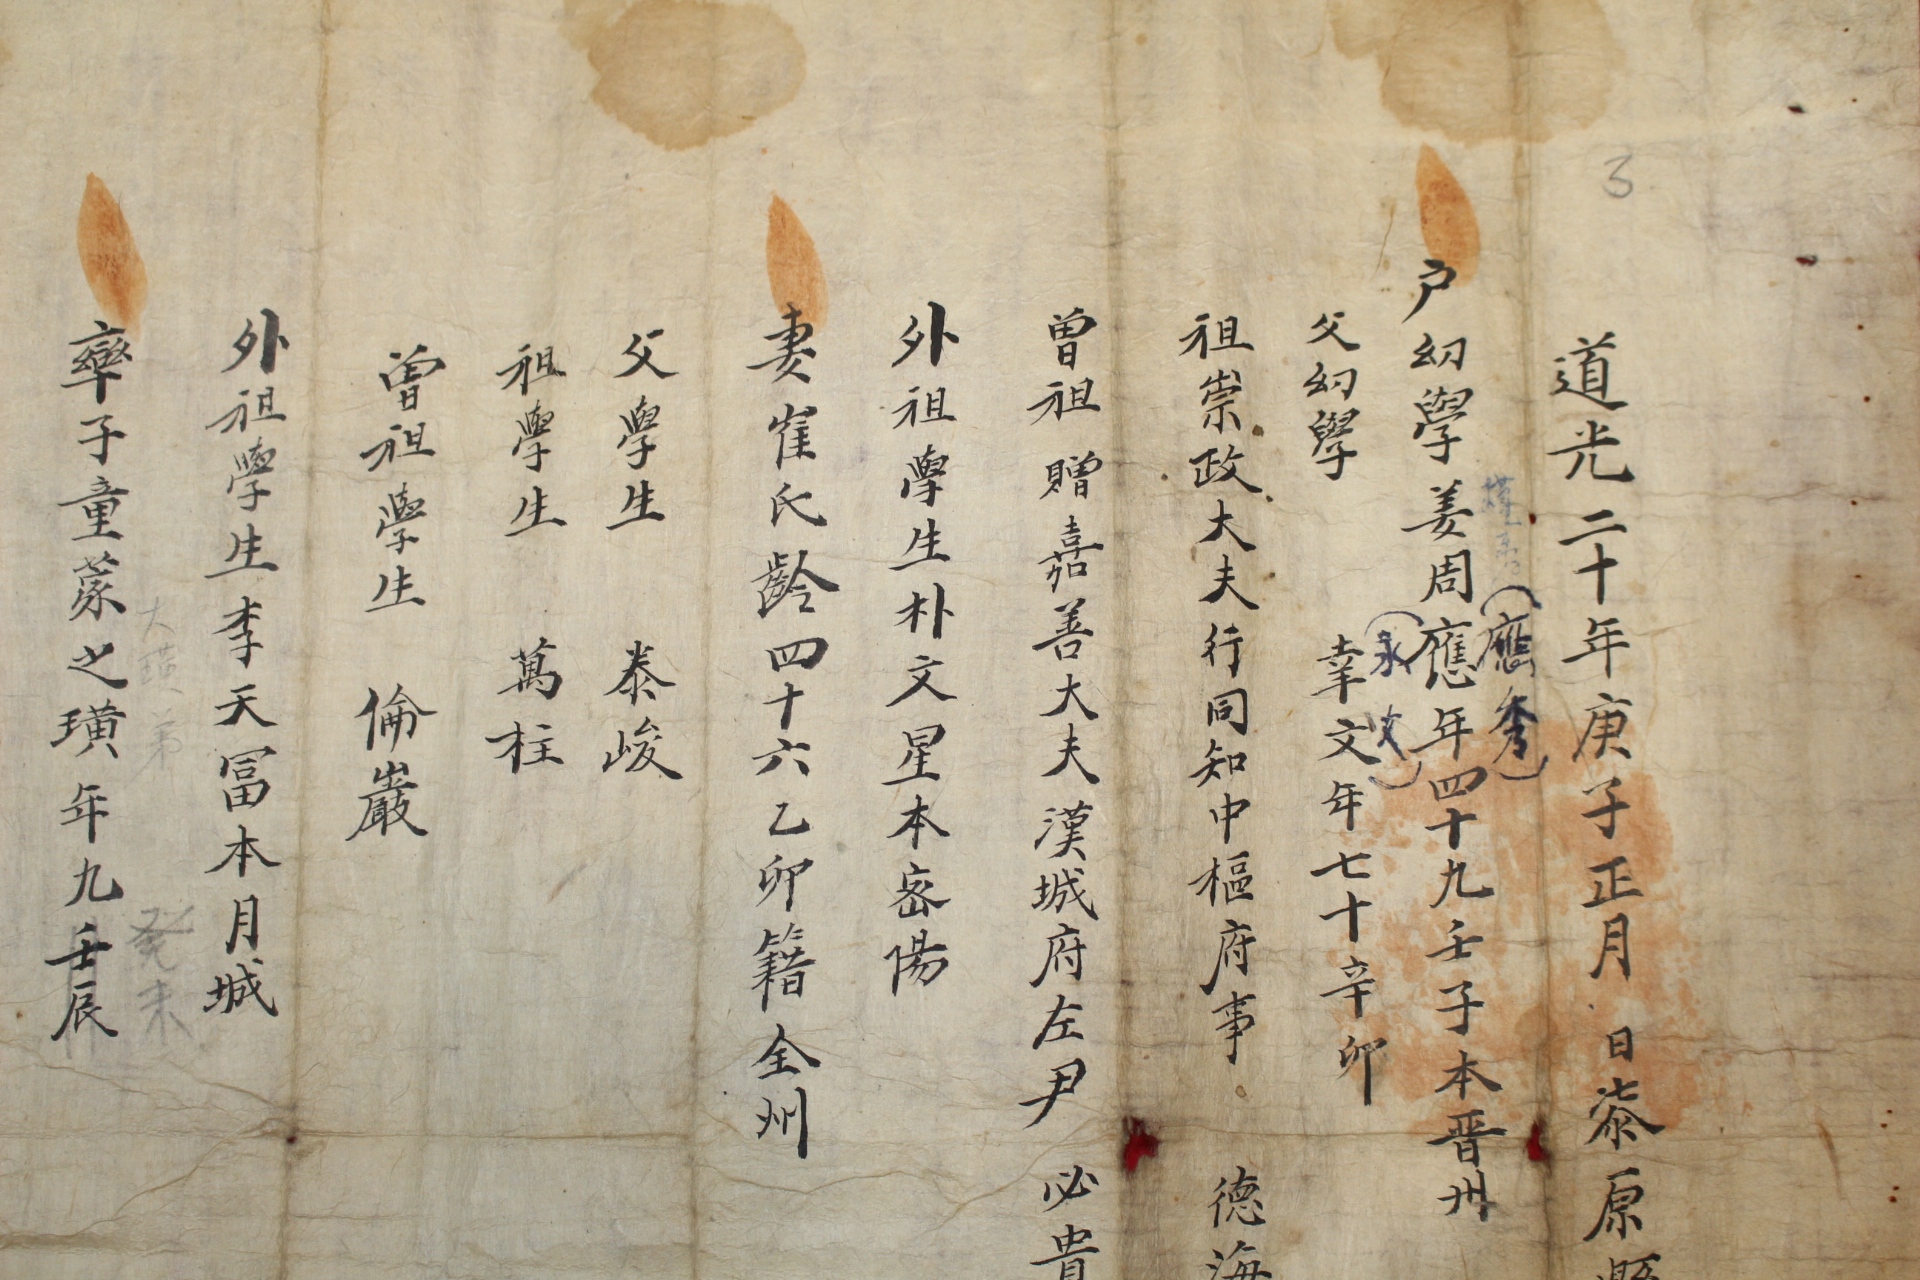 3
道光二十年庚子正月 日漆原縣
應秀
戶幼學姜周應年四十九壬子本晋州
永文
父幼學 幸文年七十辛卯
祖崇政大夫行同知中樞府事 德海
曾祖贈嘉善大夫漢城府左尹 必貴
外祖學生朴文星本密陽
妻崔氏齡四十六乙卯籍全州
父學生 泰峻
祖學生 萬柱
曾祖學生 倫嚴
外祖學生李天冨本月城
癸未
率子童蒙之璜年九壬辰